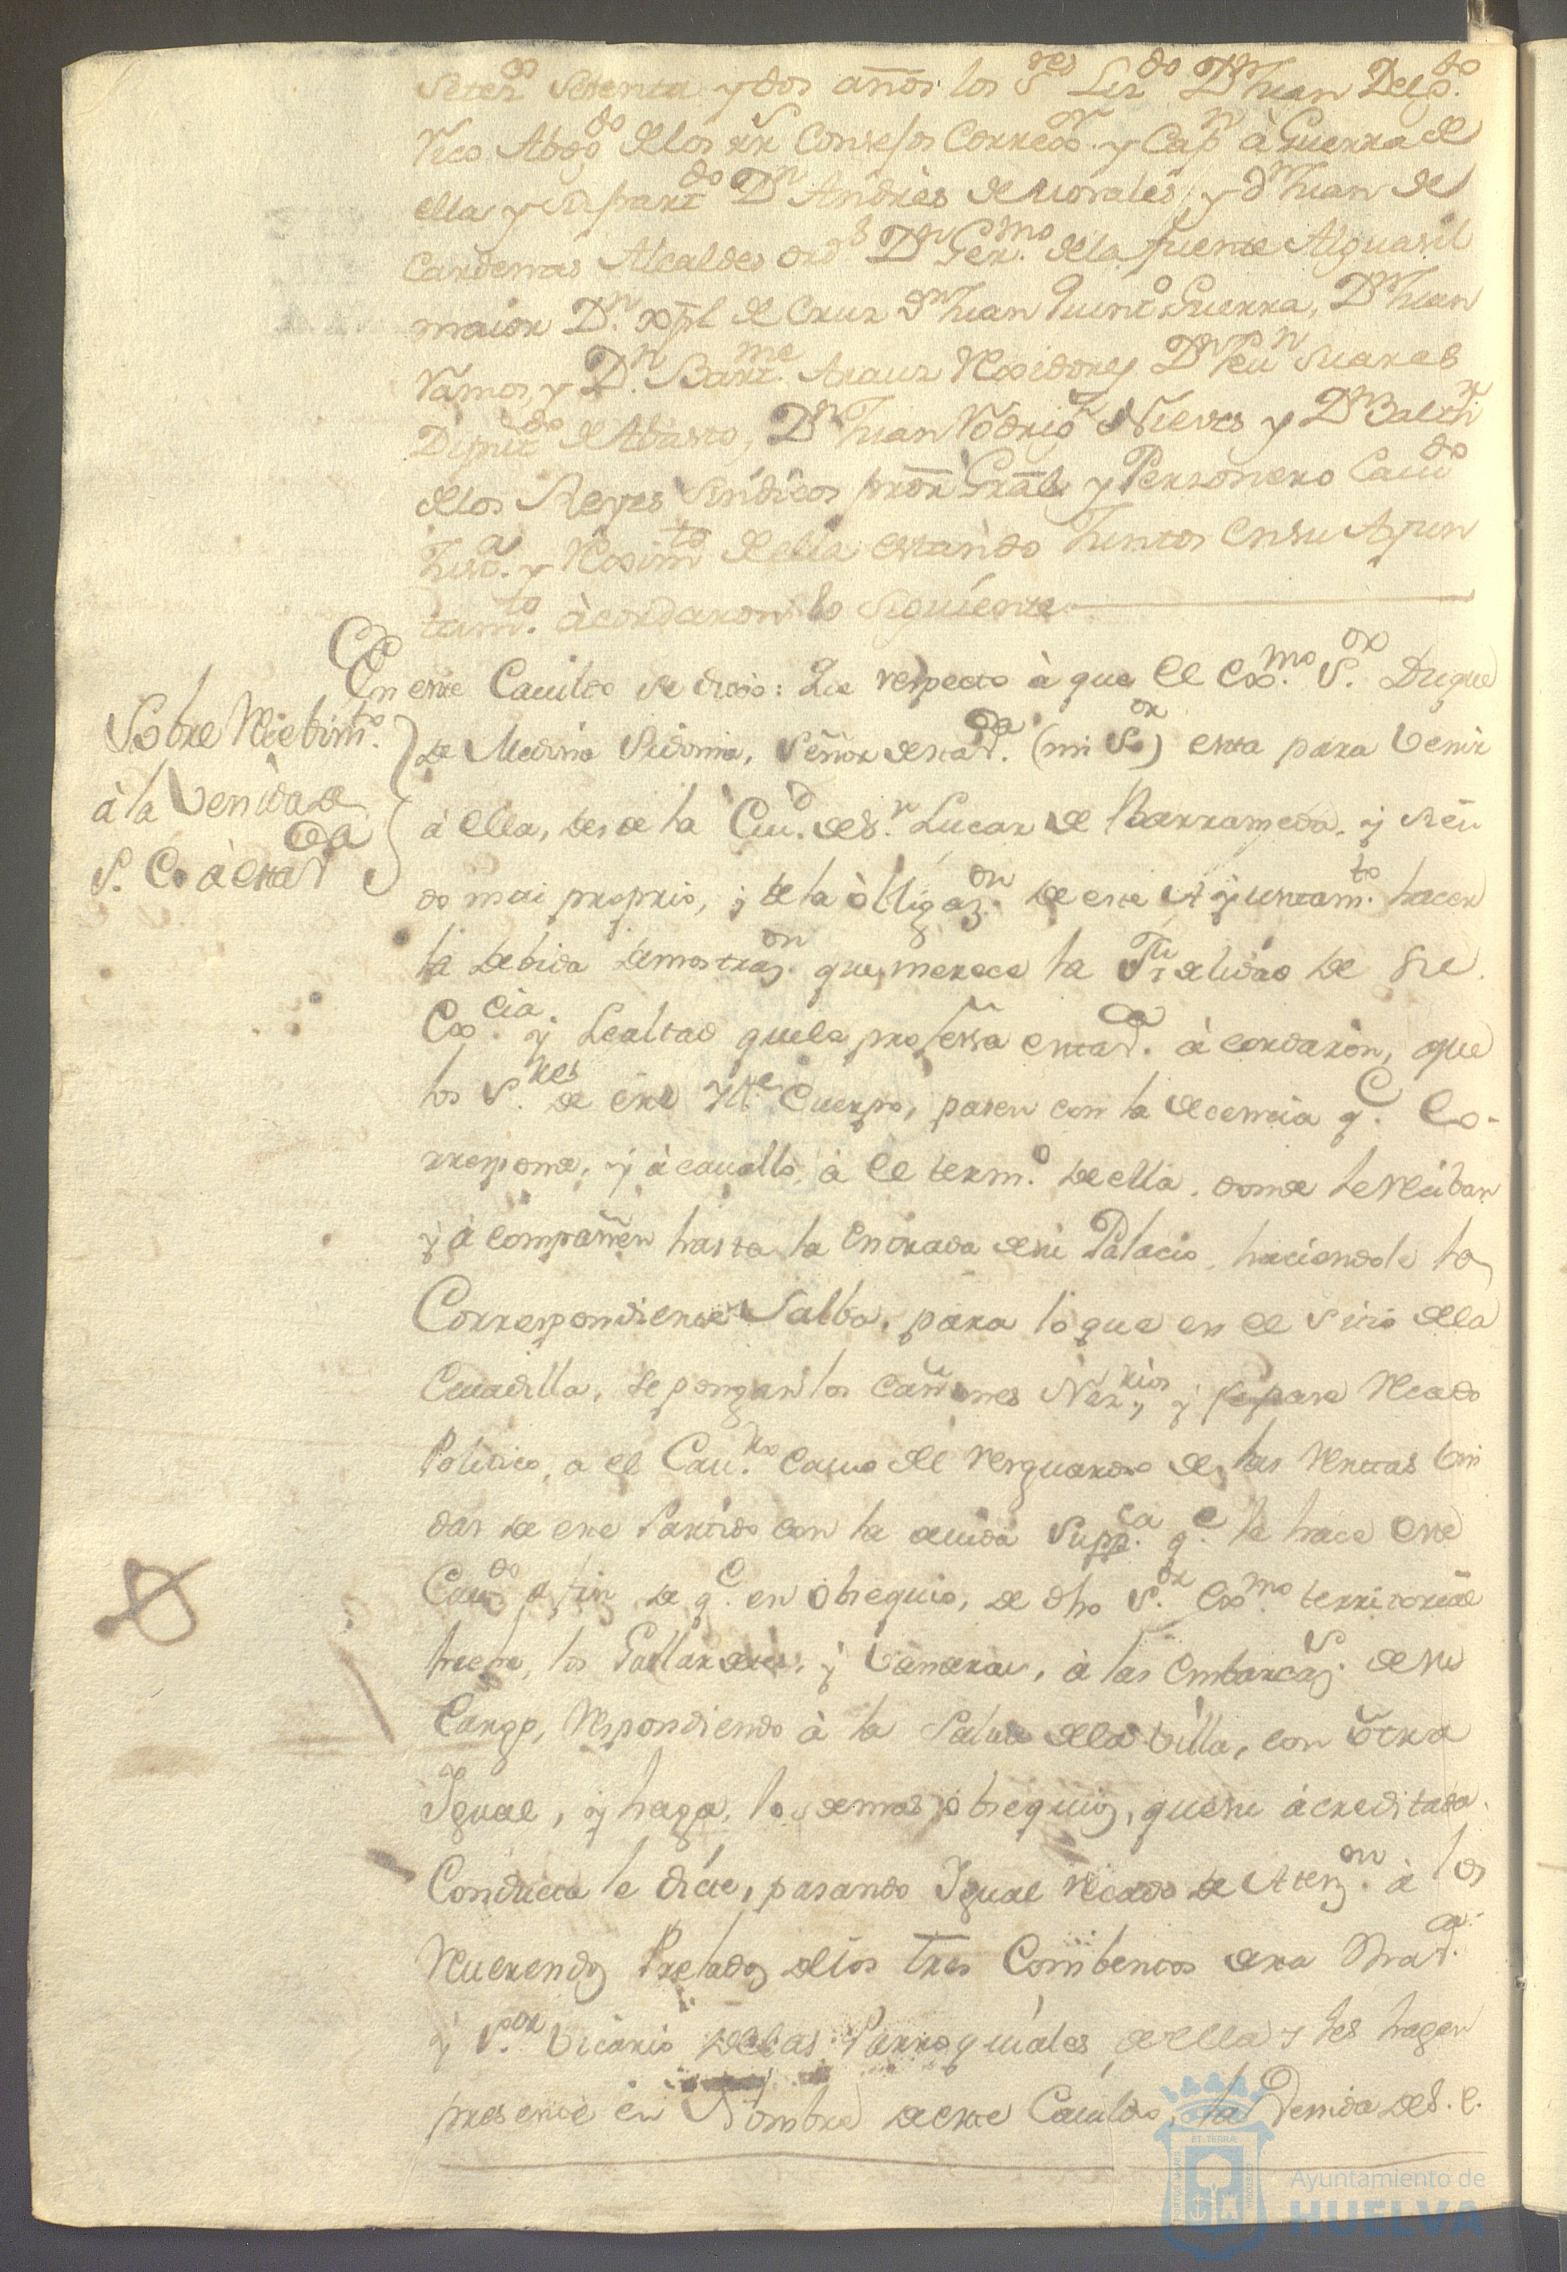 Setez.os Setenta y dos años los S.res Liz.do D.n Juan Delg.do
Rico Abog.do de los RR Consejos Correx.or y Cap.n à Guerra de
ella y su part.do D.n Andrès de Morales, y d.n Juan de
Cardenas Alcaldes ord.s D.n Ger.mo de la fuente Alguasil
maior D.n Xpl de Cruz d.n Juan Quint.o Guerra, D.n Juan
Ramos, y D.n Barr.me Arauz Rexidores D.n Suares
Diput.do de Abasto, D.n Juan Rodrig.z de Nieves y D.n Balth.r
de los Reyes Sindicos pror Gral y Personero Cau.do
Just.a y Reximi.to de ella estando Juntos en su Ayun
tam.to àcordaron lo siguiente
En este Cauildo se dixo: Que respecto à que el Ex.mo S.or Duque
de Medina Sidonia, Señor de esta V.a (mi S.or) esta para Venir
à ella, desde la Ciu.d de S.n Lucar de Barrameda, y sien
do mui proprio, y de la òbligaz.on de este Ayuntam.to hacer
la debida demostraz.on que merece la de Su
Ex.cia y Lealtad que le professa esta V.a àcordaròn, que
los S.res de este Ill.e Cuerpo, pasen con la decencia q.e Co-
rresponde, y à cauallo, à el term.o de ella, donde le reciban
y àcompañen hasta la entrada de su Palacio, haciendole la
Correspondiente Salba, para lo que en el sitio de la
se pongan los cañones Nez.rios, y se pase Recado
Politico, a el Cau.ro Cauo del resguardo de las Rentas Uni
das de este Partido con la deuida Supp.ca q.e le hace este
Cau.do a fin de q.e en òbsequio, de dho S.or Ex.mo territorial
los Gallardetes, y Vanderas, à las embarcaz.s de su
Cargo, Respondiendo à la Salua de la Villa, con òtra
Igual, y haga, los demas òbsequios, que su àcreditada
Conducta le dicte, pasando Igual recado de Atenz.on à los
Reuerendos Prelados de los tres Combentos de esta V.a
y S.or Vicario de las Parroquiales de ella y les hagan
presente en Nombre de este Cauildo, la Venida de S. E.
Sobre Reciebim.to
à la Venida de
S. Ex.a à esta V.a
Ayuntamiento de
HUELVA